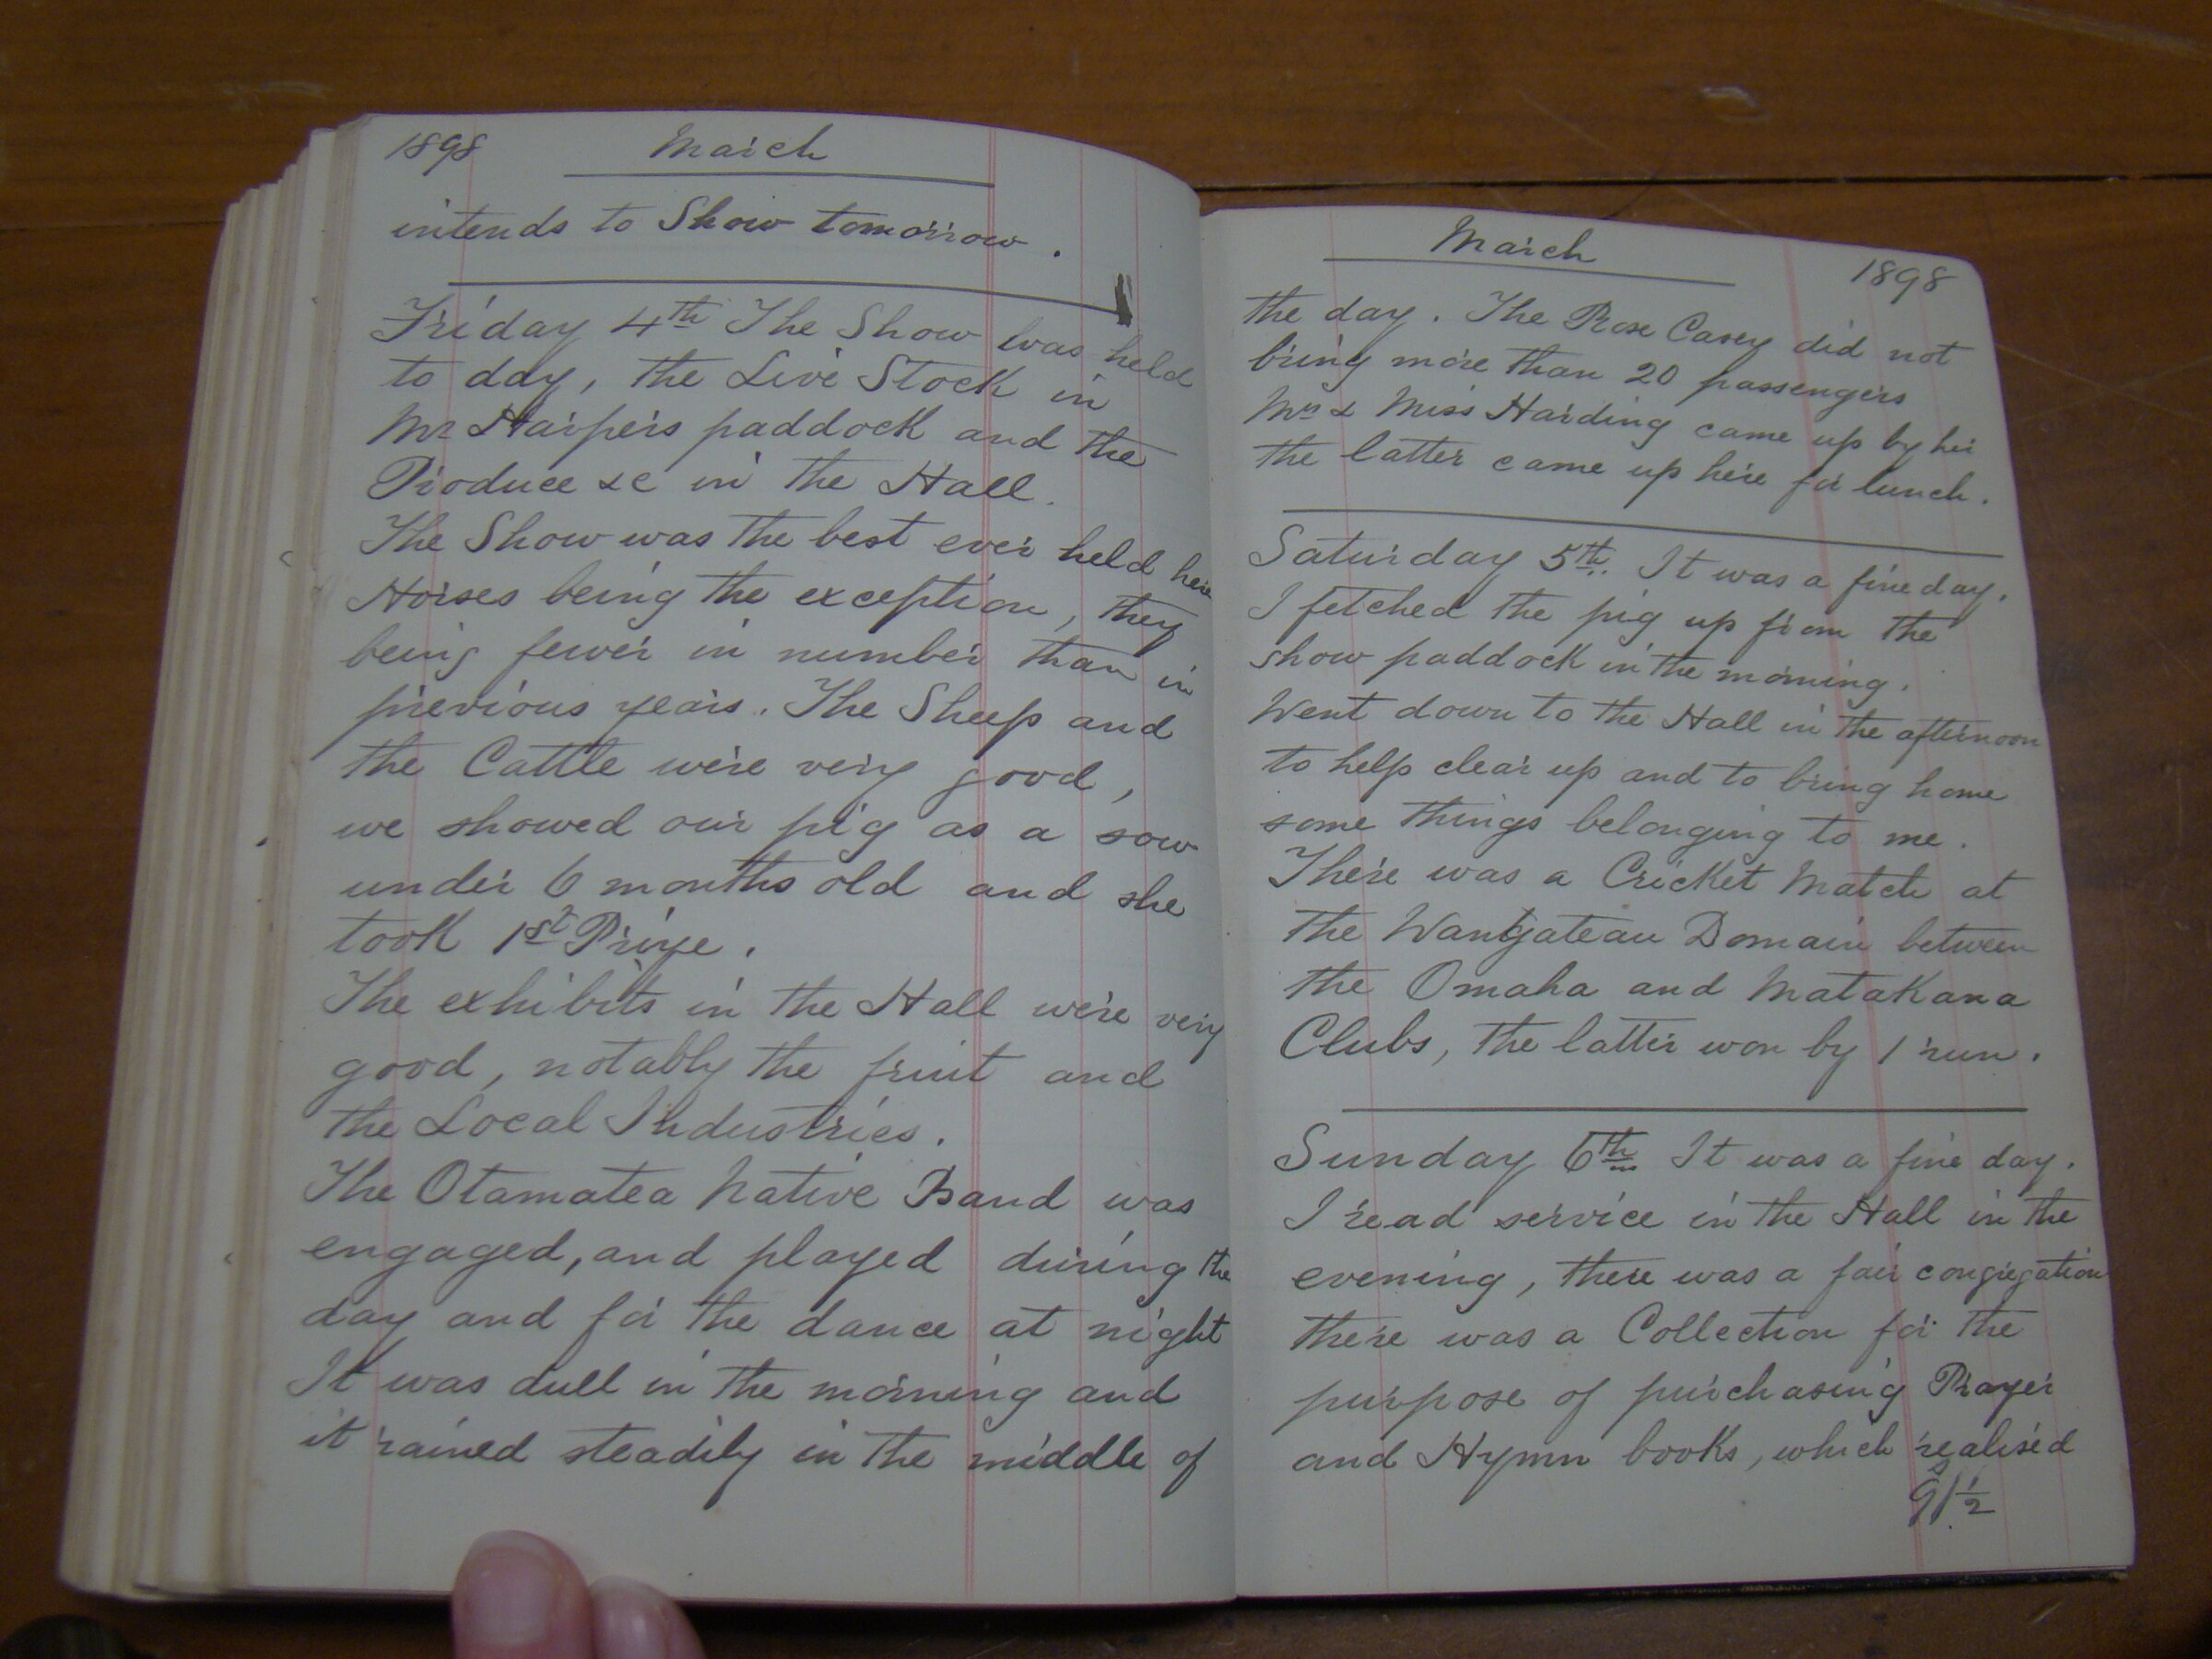 1898 March
intends to Show tomorrow.
Friday 4th The Show was held
to day, the Live Stock in
Mr Harpers paddock and the
Produce &c in the Hall.
The Show was the best ever held here
Horses being the exception, they
being fewer in number than in
previous years. The Sheep and
the Cattle were very good,
we showed our pig as a sow
under 6 months old and she
took 1st Prize.
The exhibits in the Hall were very
good, notably the fruit and
the Local Industries.
The Otamatea Native Band was
engaged, and played during the
day and for the dance at night
It was dull in the morning and
it rained steadily in the middle of
March 1898
the day. The Rose Casey did not
bring more than 20 passengers
Mrs & Miss Harding came up by her
the latter came up here for lunch.
Saturday 5th. It was a fine day.
I fetched the pig up from the
show paddock in the morning.
Went down to the Hall in the afternoon
to help clear up and to bring home
some things belonging to me.
There was a Cricket Match at
the Wangateau Domain between
the Omaha and Matakana
Clubs, the latter won by 1 run.
Sunday 6th It was a fine day.
I read service in the Hall in the
evening, there was a fair congregation
there was a Collection for the
purpose of purchasing Prayer
and Hymn books, which realised
9s/1½